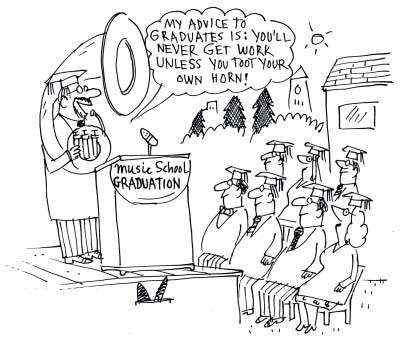 MY ADVICE TO
GRADUATES IS: YOU'LL
NEVER GET WORK
UNLESS YOU TOOT YOUR
OWN HORN!
music School
GRADUATION